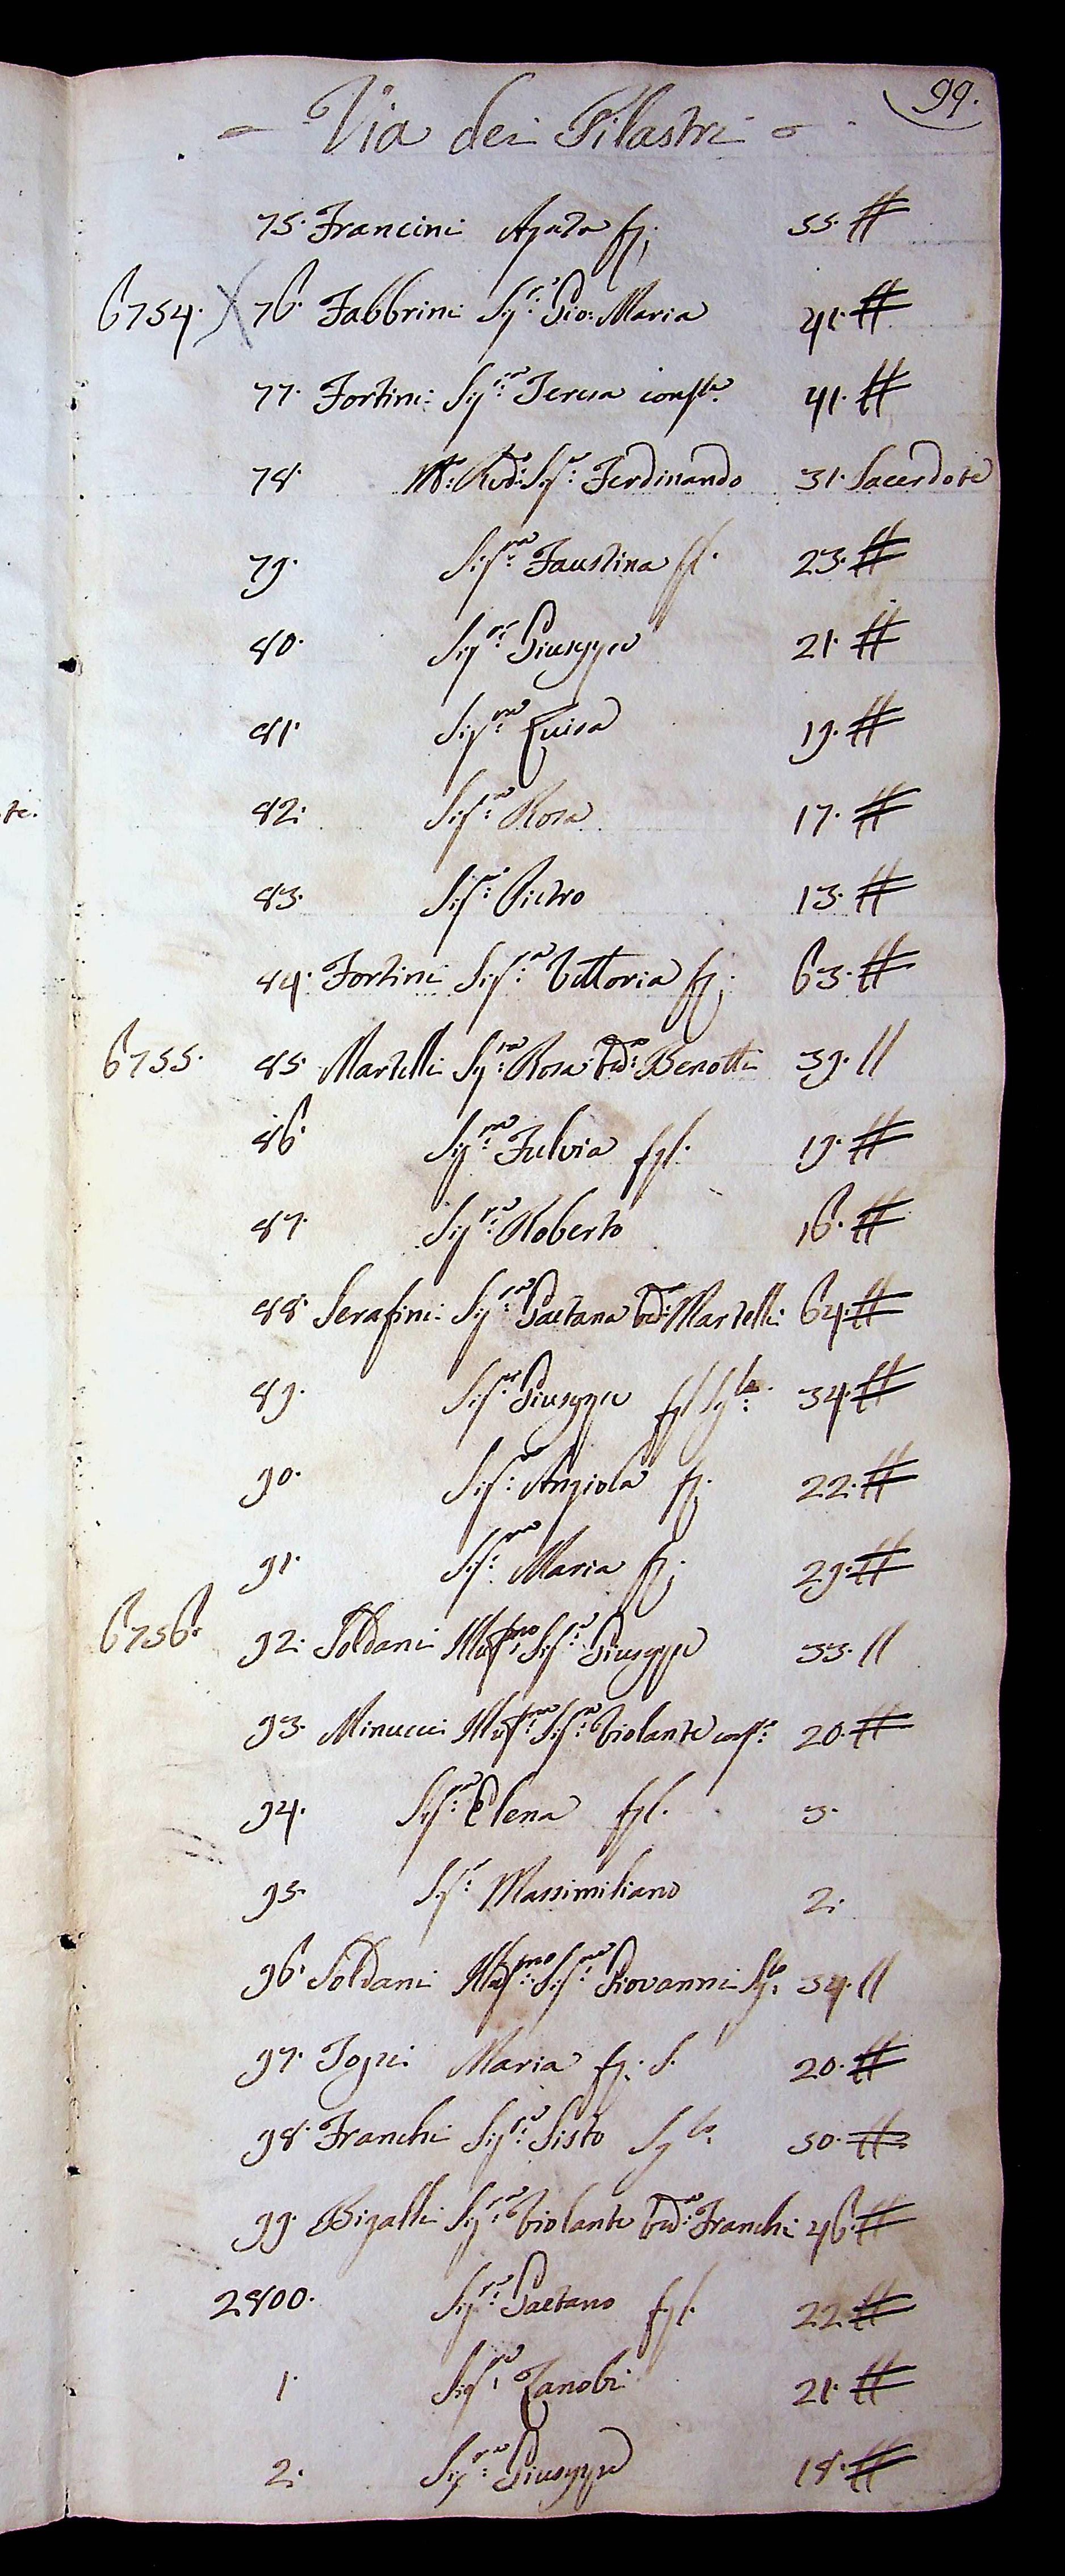 99.
Via dei Pilastri
75. Francini Agata fg: 55. #
6754. X 76. Fabbrini Sig.r Gio: Maria 41. #
77. Fortini Sig.ra Teresa cons.te 41. #
78. M.to Rev.do Sig.r Ferdinando 31. Sacerdote
te.
79. Sig.ra Faustina fl. 23. #
80. Sig.re Giuseppe 21. #
81. Sig.ra Luisa 19. #
82. Sig.a Rosa 17. #
83. Sig.r Pietro 13. #
84. Fortini Sig.a Vittoria fg: 63. #
6755. 85. Martelli Sig.ra Rosa Ved.a Benotti 39. //
86. Sig.ra Fulvia fgl. 19. #
87. Sig.re Roberto 16. #
88. Serafini Sig.ra Gaetana Ved.a Martelli 64. #
89. Sig.re Giuseppe 34. #
90. Sig.a Angiola fg. 22. #
91. Sig.ra Maria fg: 29. #
6756. 92. Soldani Ill.mo Sig.r Giuseppe 33. //
93. Minucci Ill.ma Sig.ra Violante cons.te 20. #
94. Sig.ra Elena fgl. 3.
95. Sig.r Massimiliano 2.
96. Soldani Ill.mo Sig.re Giovanni Sg.lo 34. //
97. Togni Maria fg: S. 20. #
98. Franchi Sig.re Sisto Sg.lo 50. #
99. Bigalli Sig.ra Violante Ved.a Franchi 46. #
2800. Sig.re Gaetano fgl. 22. #
1. Sig.re Zanobi 21. #
2. Sig.re Giuseppe 18. #